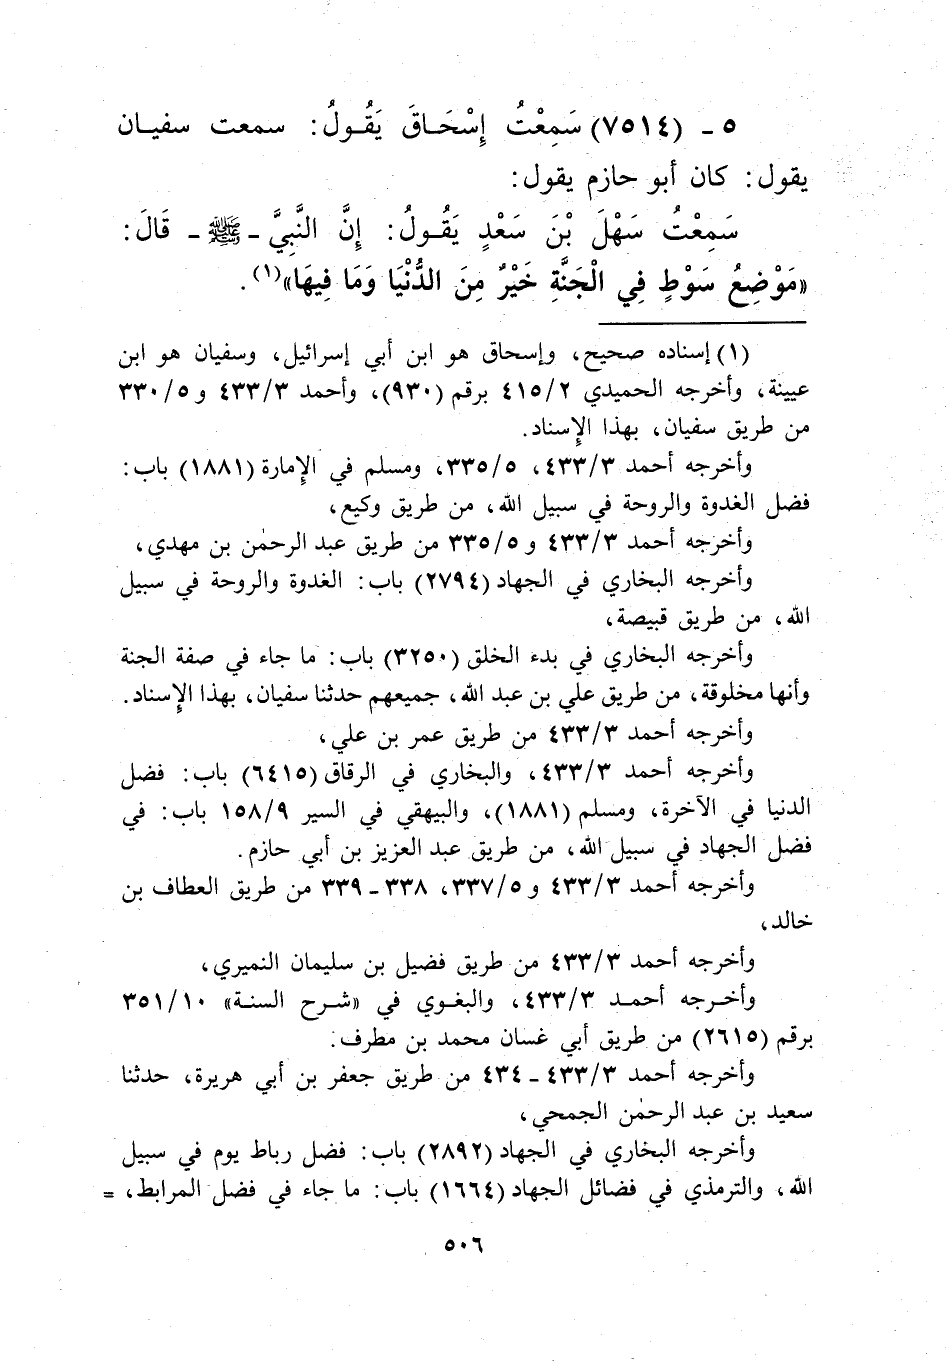 ٥ ـ (٧٥١٤) سَمِعْتُ إِسْحَـاقَ يَقُـولُ: سمعت سفيـان
يقول: كان أبو حازم يقول:
سَمِعْتُ سَهْلَ بْنَ سَعْدٍ يَقُـولُ: إِنَّ النَّبِيَّ ـ ﷺ ـ قَالَ:
«مَوْضِعُ سَوْطٍ فِي الْجَنَّةِ خَيْرٌ مِنَ الدُّنْيَا وَمَا فِيهَا»(١).
(١) إسناده صحيح، وإسحاق هو ابن أبي إسرائيل، وسفيان هو ابن
عيينة، وأخرجه الحميدي ٤١٥/٢ برقم (٩٣٠)، وأحمد ٤٣٣/٣ و ٣٣٠/٥
من طريق سفيان، بهذا الإسناد.
وأخرجه أحمد ٤٣٣/٣، ٣٣٥/٥، ومسلم في الإمارة (١٨٨١) باب:
فضل الغدوة والروحة في سبيل الله، من طريق وكيع،
وأخرجه أحمد ٤٣٣/٣ و ٣٣٥/٥ من طريق عبد الرحمٰن بن مهدي،
وأخرجه البخاري في الجهاد (٢٧٩٤) باب: الغدوة والروحة في سبيل
الله، من طريق قبيصة،
وأخرجه البخاري في بدء الخلق (٣٢٥٠) باب: ما جاء في صفة الجنة
وأنها مخلوقة، من طريق علي بن عبد الله، جميعهم حدثنا سفيان، بهذا الإسناد.
وأخرجه أحمد ٤٣٣/٣ من طريق عمر بن علي،
وأخرجه أحمد ٤٣٣/٣، والبخاري في الرقاق (٦٤١٥) باب: فضل
الدنيا في الآخرة، ومسلم (١٨٨١)، والبيهقي في السير ١٥٨/٩ باب: في
فضل الجهاد في سبيل الله، من طريق عبد العزيز بن أبي حازم.
وأخرجه أحمد ٤٣٣/٣ و ٣٣٧/٥، ٣٣٨ ـ ٣٣٩ من طريق العطاف بن
خالد،
وأخرجه أحمد ٤٣٣/٣ من طريق فضيل بن سليمان النميري،
وأخـرجه أحمـد ٤٣٣/٣، والبغـوي في «شـرح السنـة» ٣٥١/١٠
برقم (٢٦١٥) من طريق أبي غسان محمد بن مطرف:
وأخرجه أحمد ٤٣٣/٣ ـ ٤٣٤ من طريق جعفر بن أبي هريرة، حدثنا
سعيد بن عبد الرحمٰن الجمحي،
وأخرجه البخاري في الجهاد (٢٨٩٢) باب: فضل رباط يوم في سبيل
الله، والترمذي في فضائل الجهاد (١٦٦٤) باب: ما جاء في فضل المرابط، =
٥٠٦